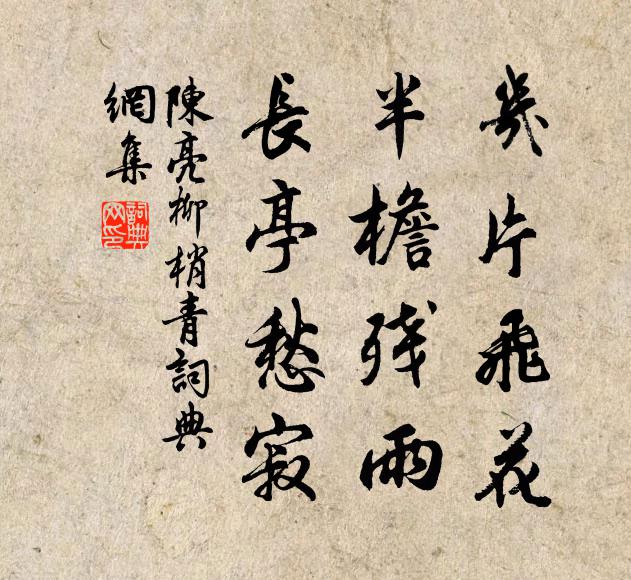 幾片飛花
半檐殘雨
長亭愁寂
陳亮柳梢青詞典
網集
詞典
网印